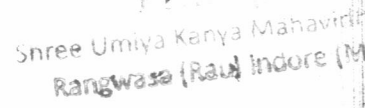 Shree Umiya Kanya Mahavi
Rangwasa (Rau) Indore (M